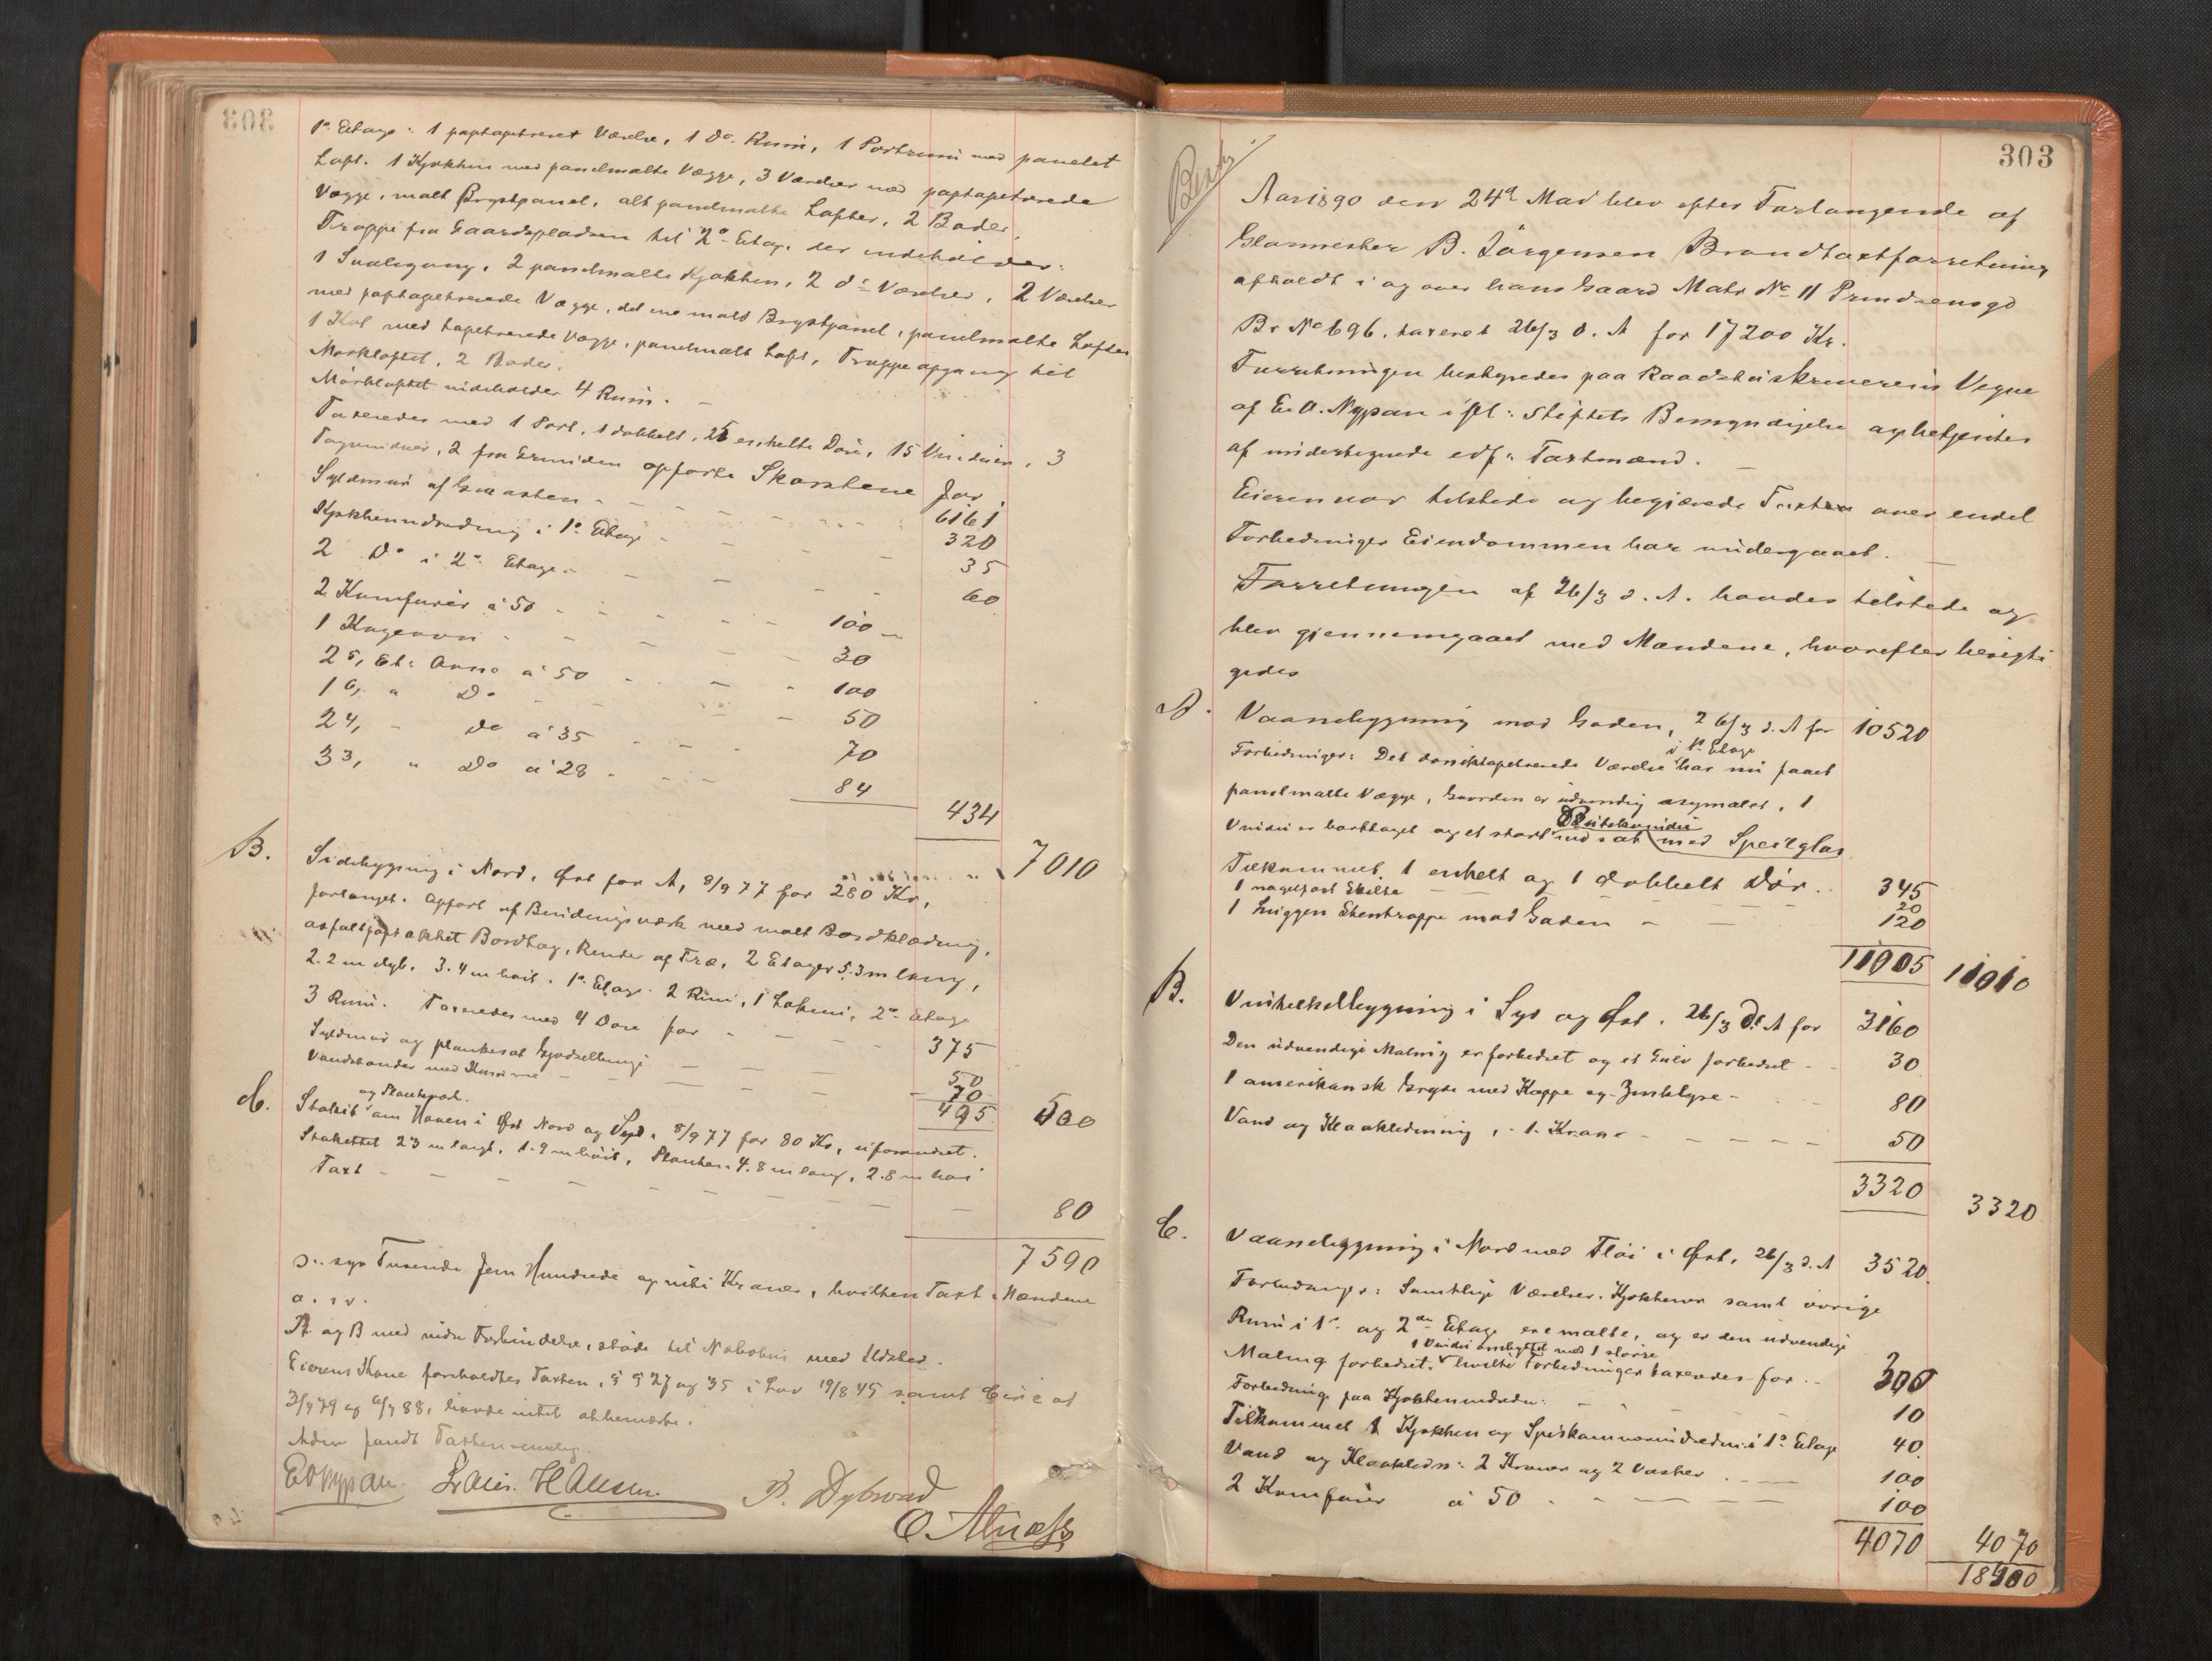 1ᵉ Etage: 1 paptapetseret Værelse, 1 Dᵒ Rum, 1 Portrum med panelet
Loft. 1 Kjøkken med panelmalte Vægge, 3 Værelser med paptapetserede
Vægge, malt Brystpanel, alt panelmalte Lofter, 2 Boder,
Trappe fra Gaardspladsen til 2ᵉ Etage, der indeholder:
1 Svalegang, 2 panelmalte Kjøkken, 2 dᵒ Værelser, 2 Værelser
med paptapetserede Vægge, det ene malt Brystpanel, panelmalte Lofter
1 Kot med tapetserede Vægge, panelmalt Loft, Trappeopgang til
Mørkloftet, 2 Boder.
Mörkloftet indeholder 4 Rum. –
Taxeredes med 1 Port, 1 dobbelt, 25 enkelte Döre, 15 Vinduer, 3
Tagvinduer, 2 fra Grunden opførte Skorstene for 6161
Syldmur af Graasten 320
Kjøkkenindredning i 1ᵉ Etage 35
2 Dᵒ i 2ᵉ Etage 60
2 Komfurer á 50 100
1 Kogeovn 30
2 5, Et: Ovne á 50 100
1 6, " Dᵒ 50
2 4, - dᵒ á 35 70
3 3, " Dᵒ á 28 84
434
7010
B. Sidebygning i Nord, Øst for A, 8/9 77 for 280 Kr,
forlænget. Opført af Bindingsværk med malt Bordklædning,
asfaltpaptækket Bordtag, Render af Træ, 2 Etager 5.3 m lang,
2.2 m dyb, 3.4 m höit. 1ᵉ Etage 2 Rum, 1 Lokum, 2ᵉ Etage
3 Rum. Taxeredes med 4 Döre for 375
Syldmur og plankesat Gjødselbinge 50
Vandstender med Kumme 70
495 500
og Planteport.
C. Stakit om Haven i Øst Nord og Syd, 8/9 77 for 80 Kr, uforandret.
Stakittet 23 m langt, 1.9 m höit, Planken 4.8 m lang, 2.8 m höi
Taxt 80
7590
D.. syv Tusende fem Hundrede og nitti Kroner, hvilken Taxt Mændene
o. s. v.
A og B med indre Forbindelse, støde til Nabohus med Ildsted.
Eierens Kone foreholdtes Taxten, § § 27 og 35 i Lov 19/8 45 samt Circ af
3/7 79 og 6/7 88, havde intet at bemærke.
Adm fandt Taxten rimelig.
E O Nypan. Laur. Hansen. B. Dybwad
O. Alnæss
303
Besty.
Aar 1890 den 24ᵈ Mai blev efter Forlangende af
Glasmester B. Jörgensen Brandtaxtforretning
afholdt i og over hans Gaard Matr Nᵒ 11 Prindsensgd
Br Nᵒ 696, taxeret 26/3 d. A for 17200 Kr.
Forretningen bestyredes paa Raadstuskriverens Vegne
af E. O. Nypan ifl: Stiftets Bemyndigelse og betjentes
af undertegnede edf: Taxtmænd. –
Eieren var tilstede og begjærede Taxten over endel
Forbedringer Eiendommen har undergaaet. –
Forretningen af 26/3 d. A. havdes tilstede og
blev gjennemgaaet med Mændene, hvorefter besigti
gedes
A. Vaanebygning mod Gaden, 26/3 d. A for 10520
i 1ᵉ Etage
Forbedringer: Det dansktapetserede Værelse har nu faaet
panelmalte Vægge, Gaarden er udvendig nymalet, 1
Butikvindu
Vindu er borttaget og et stort indsat med Speilglas
Tilkommet 1 enkelt og 1 dobbelt Dör 345
1 nagelfast Skilte 20
1 huggen Stentrappe mod Gaden 120
11005 11010
B. Vinkelbygning i Syd og Øst, 26/3 d. A for 3160
Den udvendige Maling er forbedret og et Gulv forbedret 30
1 amerikansk Gryde med Kappe og Zinklype 80
Vand og Kloakledning, 1 Kran 50
3320 3320
C. Vaanebygning i Nord med Flöi i Øst, 26/3 d. A 3520
Forbedringer: Samtlige Værelser, Kjøkkener samt övrige
Rum i 1ᵉ og 2ᵈᵉⁿ Etage ere malte, og er den udvendige
1 Vindu ombyttet med 1 större
Maling forbedret, hvilke Forbedringer taxeredes for 300
Forbedring paa Kjøkkenindredn: 10
Tilkommet 1 Kjøkken og Spiskammerindredn: i 1ᵉ Etage 40
Vand og Kloakledn: 2 Kraner og 2 Vasker 100
2 Komfurer á 50 100
4070 4070
18400